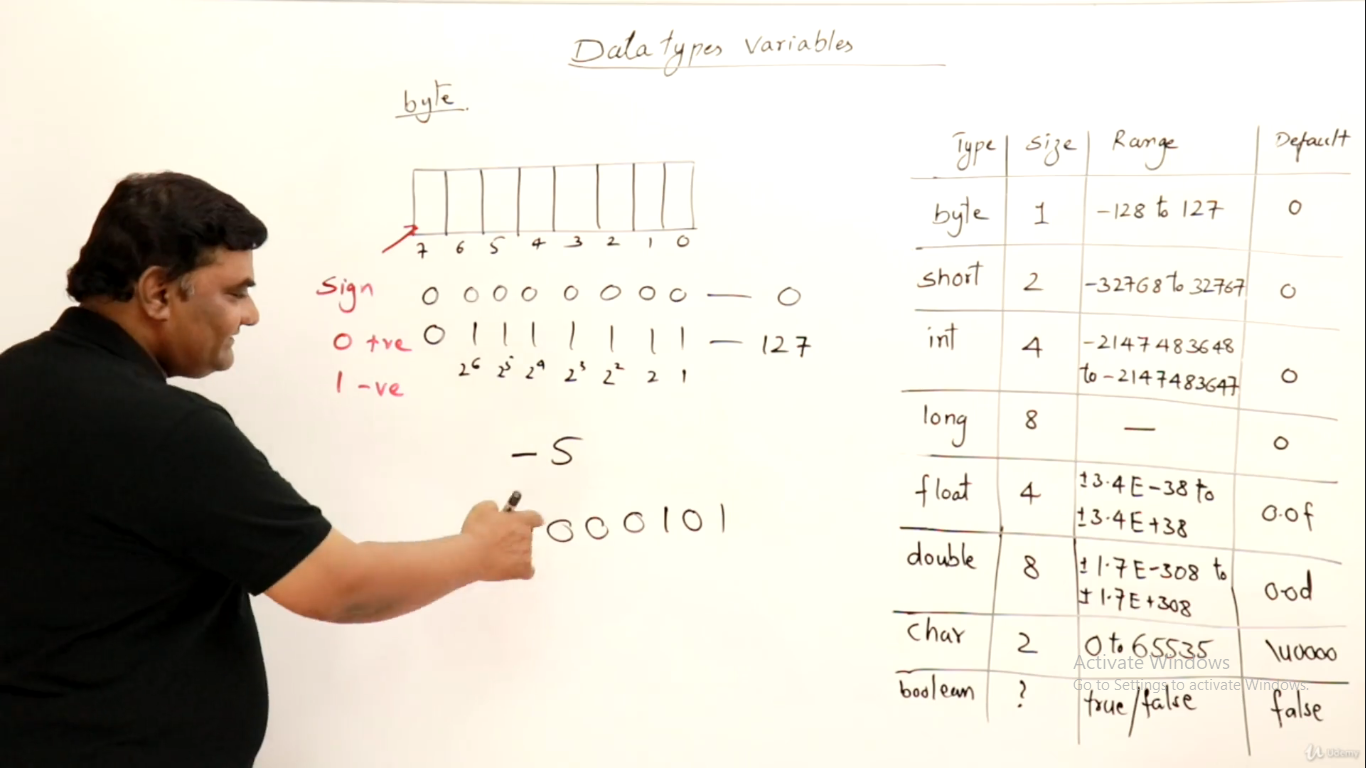 Data types Variables
byte
7 6 5 4 3 2 1 0
Sign 0 0 0 0 0 0 0 0 — 0
0 +ve 0 1 1 1 1 1 1 1 — 127
1 -ve 2⁶ 2⁵ 2⁴ 2³ 2² 2 1
-5
0 0 0 1 0 1
Type Size Range Default
byte 1 -128 to 127 0
short 2 -32768 to 32767 0
int 4 -2147483648
to -2147483647 0
long 8 — 0
float 4 ±3.4E-38 to
±3.4E+38 0.0f
double 8 ±1.7E-308 to
±1.7E+308 0.0d
char 2 0 to 65535 \u0000
boolean ? true/false false
Activate Windows
Go to Settings to activate Windows.
Udemy